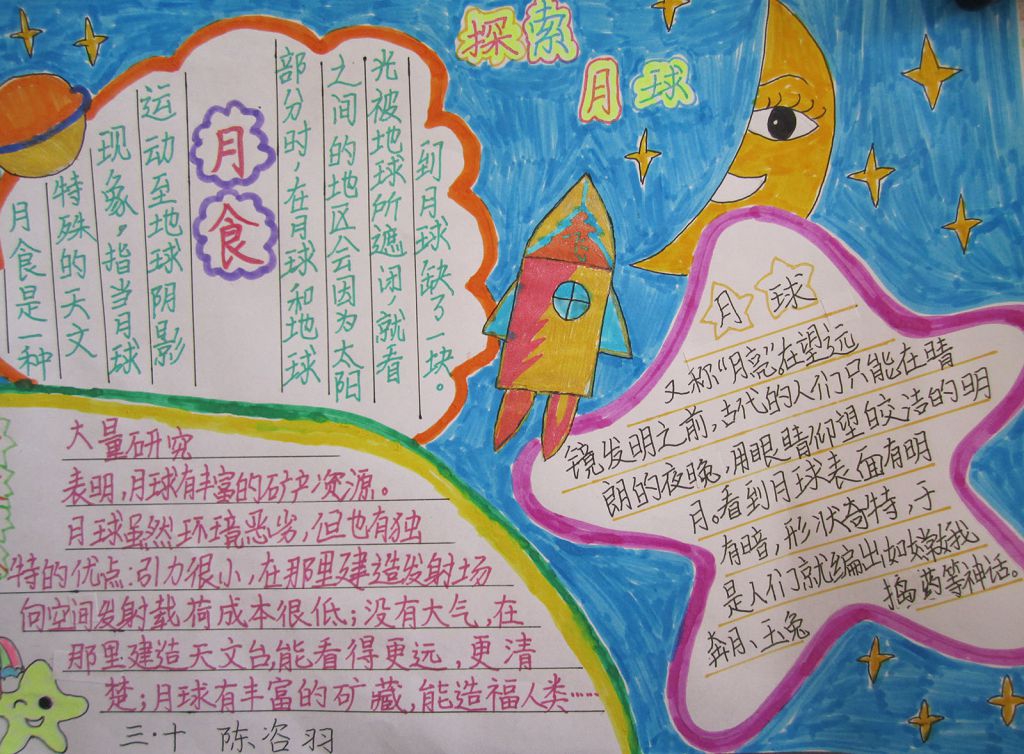 探索
月球
月食
月食是一种
特殊的天文
现象，指当月球
运动至地球阴影
部分时，在月球和地球
之间的地区会因为太阳
光被地球所遮闭，就看
到月球缺了一块。
月球
又称“月亮”。在望远
镜发明之前，古代的人们只能在晴
朗的夜晚，用眼睛仰望皎洁的明
月。看到月球表面有明
有暗，形状奇特，于
是人们就编出如嫦娥
奔月、玉兔捣药等神话。
大量研究
表明，月球有丰富的矿产资源。
月球虽然环境恶劣，但也有独
特的优点：引力很小，在那里建造发射场
向空间发射载荷成本很低；没有大气，在
那里建造天文台，能看得更远，更清
楚；月球有丰富的矿藏，能造福人类……
三·十 陈咨羽